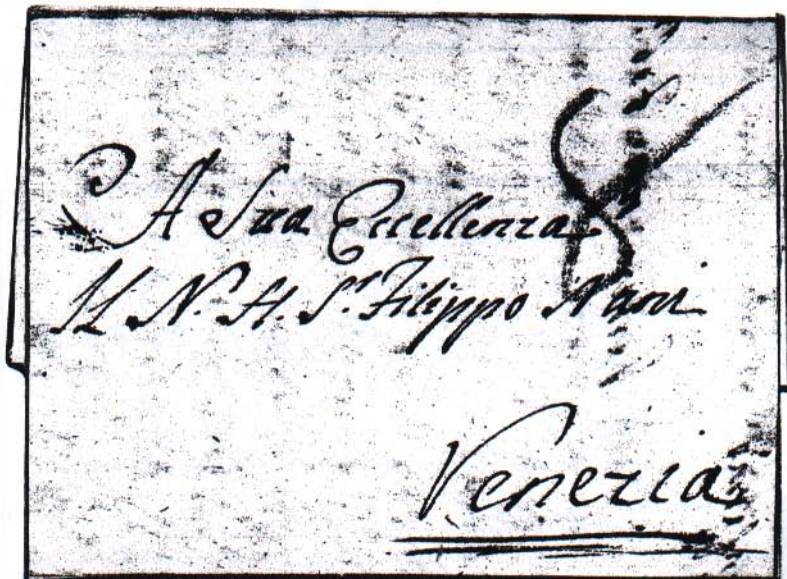 8
A Sua Eccellenza
Il N. H. S.r Filippo Nani
Venezia